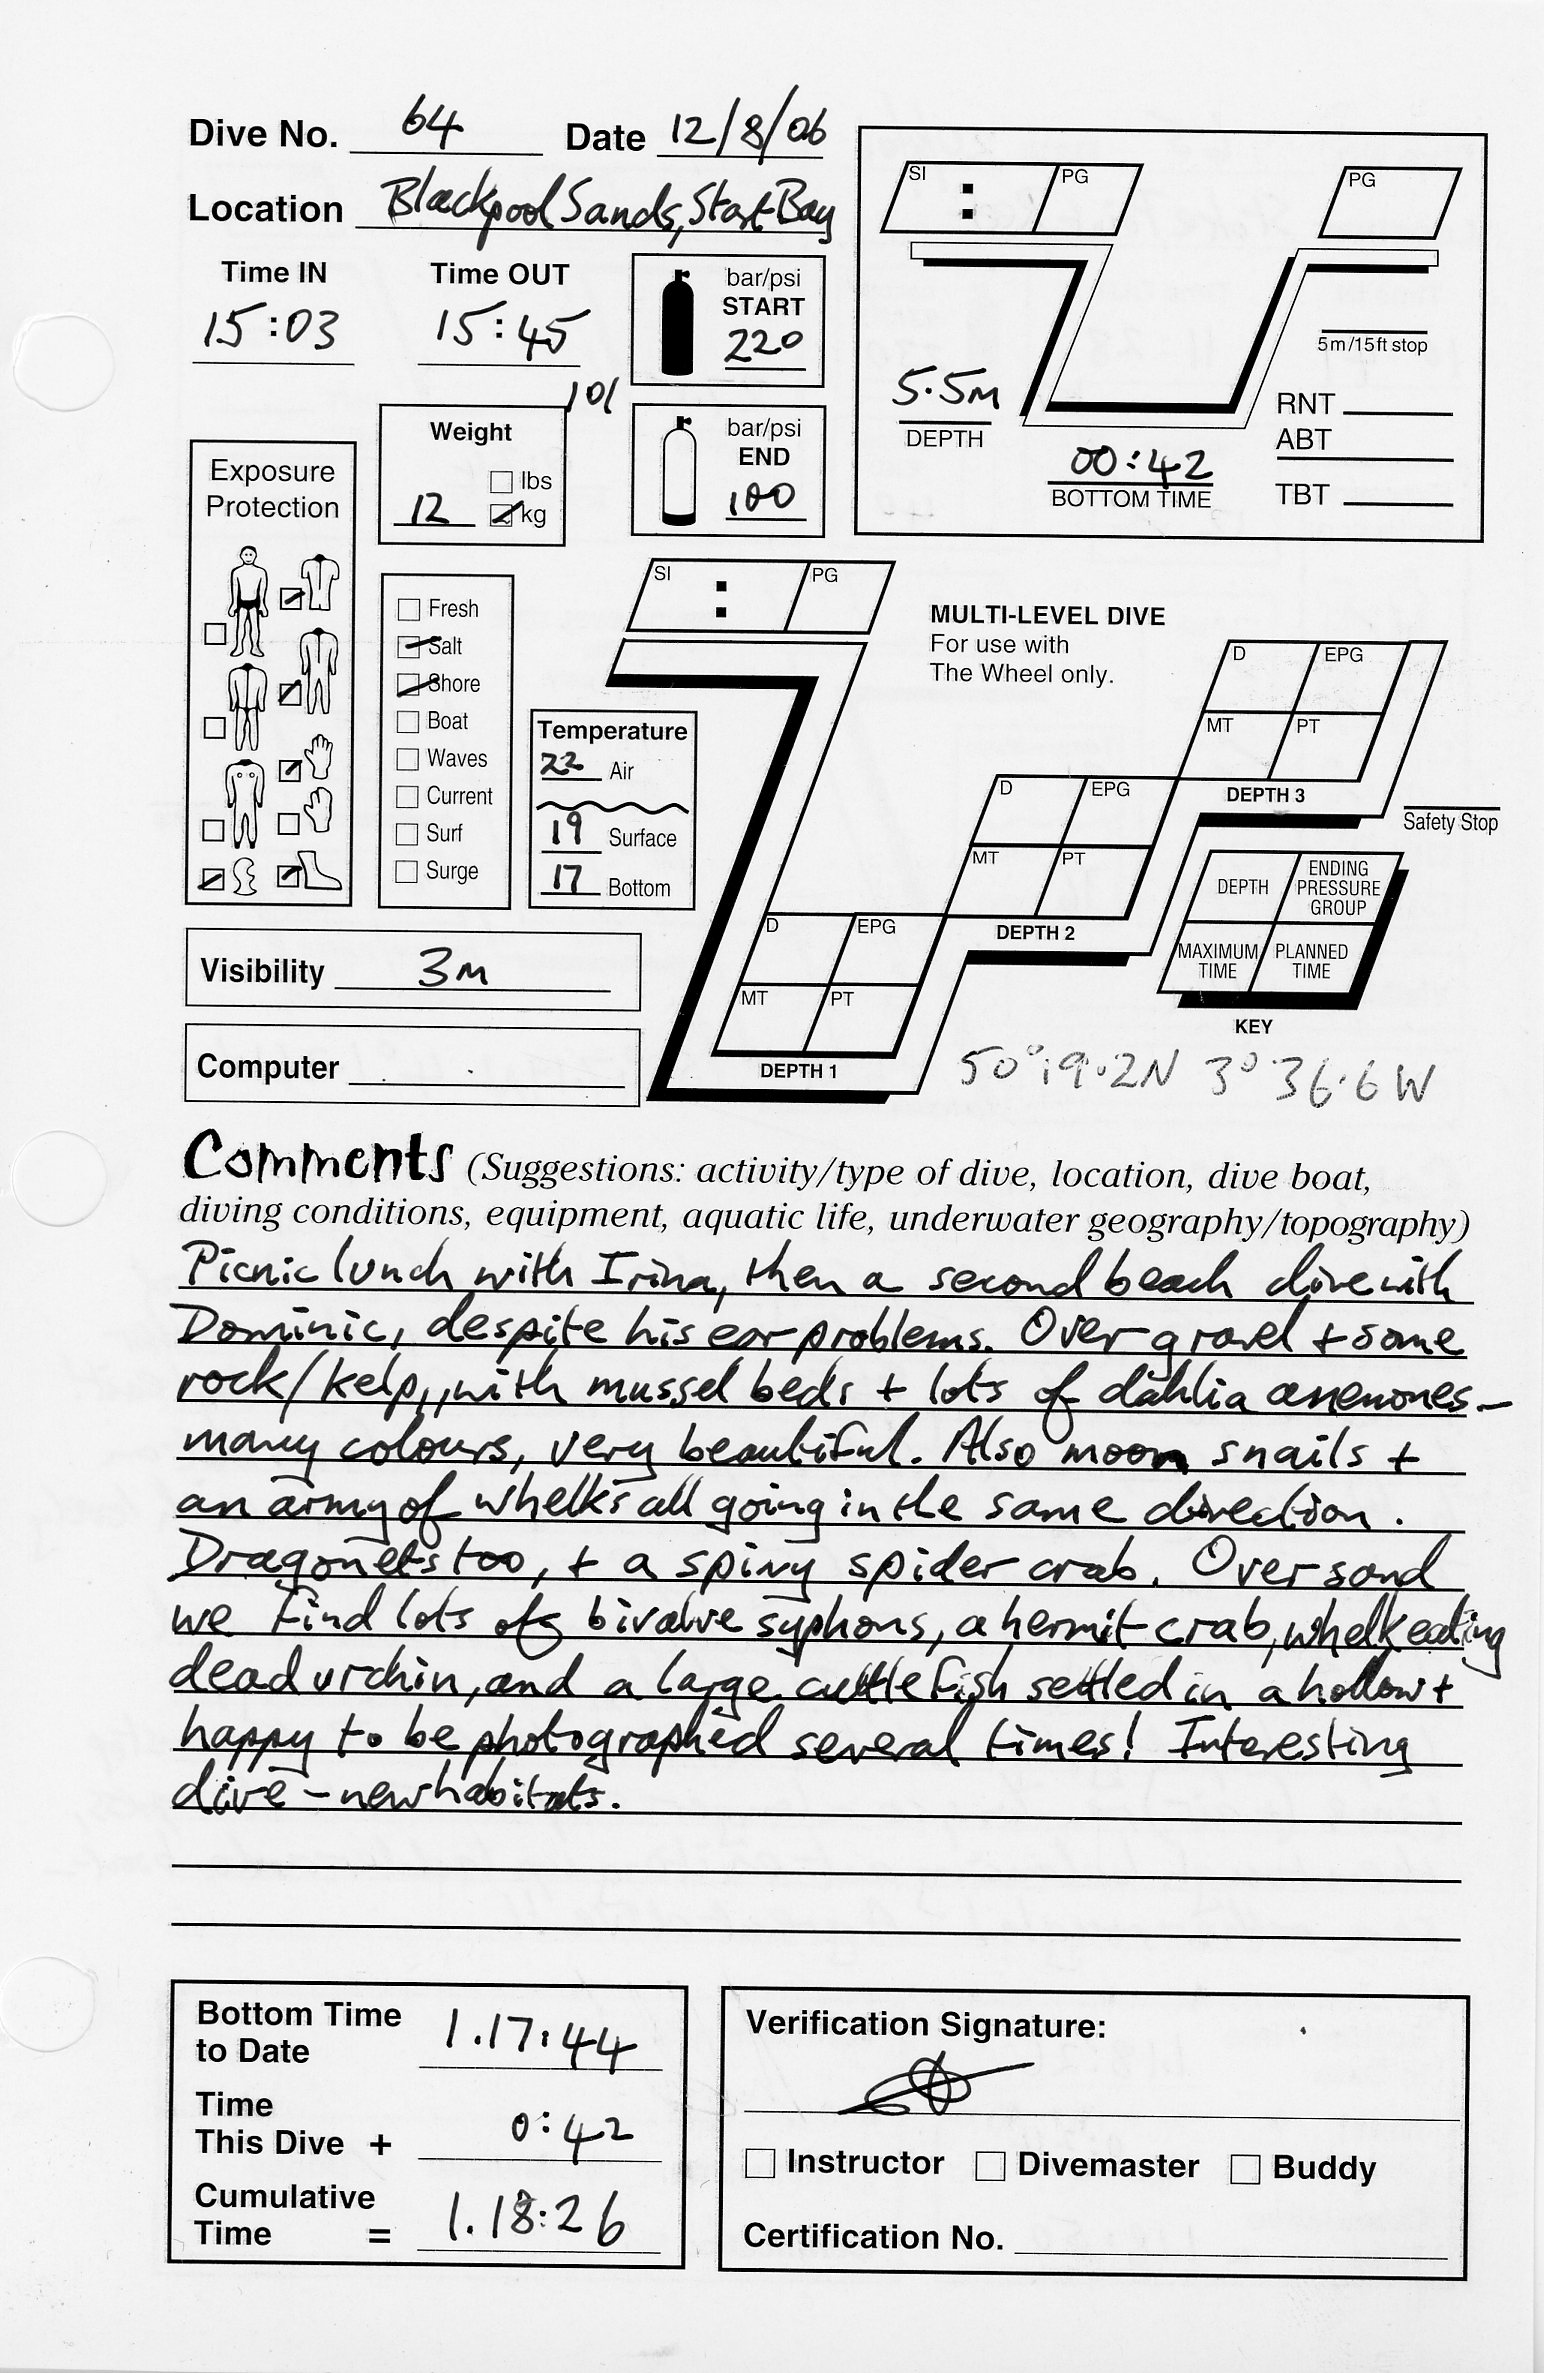 Dive No. 64 Date 12/8/06
Location Blackpool Sands, Start Bay
Time IN Time OUT
15:03 15:45
bar/psi
START
220
10l
bar/psi
END
100
Weight
lbs
12 kg
Exposure
Protection
Fresh
Salt
Shore
Boat
Waves
Current
Surf
Surge
Temperature
22 Air
19 Surface
17 Bottom
Visibility 3m
Computer
SI : PG
PG
5.5m
DEPTH
00:42
BOTTOM TIME
5m/15ft stop
RNT
ABT
TBT
SI : PG
MULTI-LEVEL DIVE
For use with
The Wheel only.
D EPG
MT PT
DEPTH 3
D EPG
MT PT
DEPTH 2
D EPG
MT PT
DEPTH 1
Safety Stop
DEPTH ENDING PRESSURE GROUP
MAXIMUM TIME PLANNED TIME
KEY
50°19.2N 3°36.6W
Comments (Suggestions: activity/type of dive, location, dive boat,
diving conditions, equipment, aquatic life, underwater geography/topography)
Picnic lunch with Irina, then a second beach dive with
Dominic, despite his ear problems. Over gravel + some
rock/kelp, with mussel beds + lots of dahlia anemones -
many colours, very beautiful. Also moon snails +
an army of whelks all going in the same direction.
Dragonets too, + a spiny spider crab. Over sand
we find lots of bivalve syphons, a hermit crab, whelk eating
dead urchin, and a large cuttlefish settled in a hollow +
happy to be photographed several times! Interesting
dive - new habitats.
Bottom Time
to Date 1.17:44
Time
This Dive + 0:42
Cumulative
Time = 1.18:26
Verification Signature:
Instructor Divemaster Buddy
Certification No.